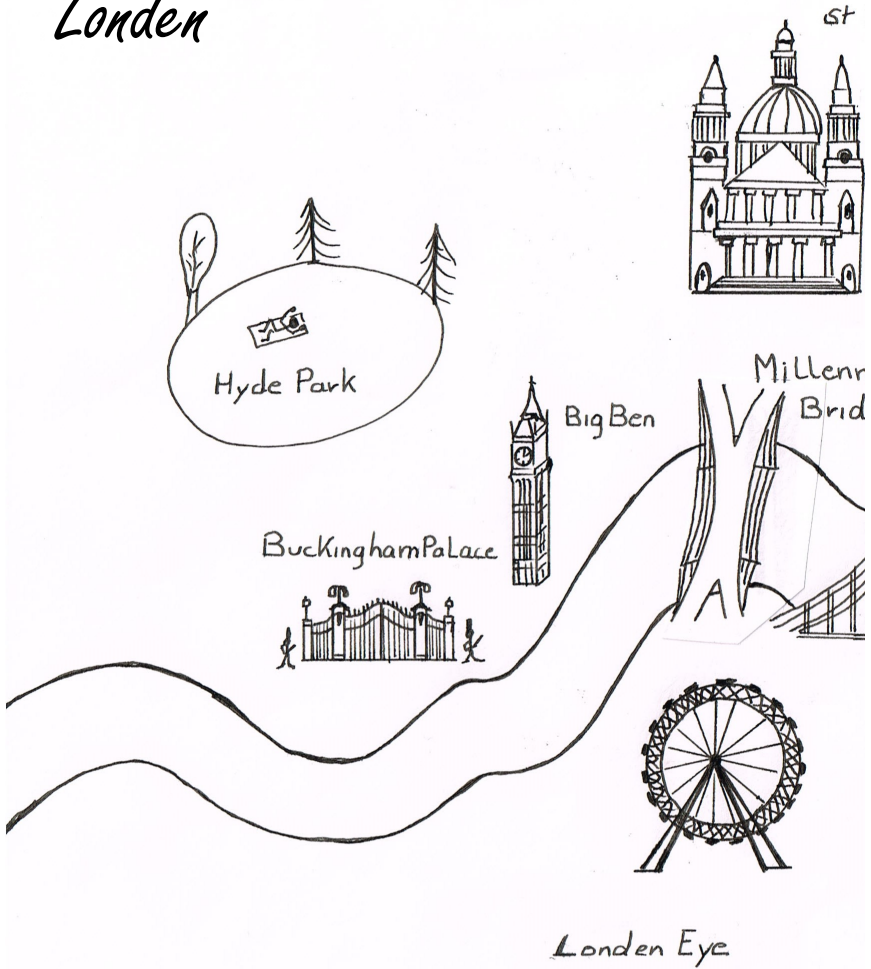 Londen
St
Hyde Park
Millenn
Brid
Big Ben
Buckingham Palace
Londen Eye